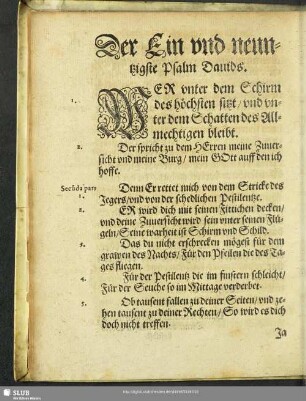 Der Ein vnd neun-
tzigste Psalm Dauids.
1.
WER vnter dem Schirm
des höchsten sitzt / vnd vn-
ter dem Schatten des All-
mechtigen bleibt.
2. Der spricht zu dem HErren meine Zuuer-
sicht vnd meine Burg / mein GOtt auff den ich
hoffe.
Secūda pars
1. Denn Er rettet mich von dem Stricke des
Jegers / vnd von der schedlichen Pestilentze.
2. ER wird dich mit seinen Fittichen decken /
vnd deine Zuuersicht wird sein vnter seinen Flü-
geln / Seine warheit ist Schirm vnd Schild.
3. Das du nicht erschrecken mögest für dem
grawen des Nachts / Für den Pfeilen die des Ta-
ges fliegen.
4. Für der Pestilentz die im finstern schleicht /
Für der Seuche so im Mittage verderbet.
5. Ob tausent fallen zu deiner Seiten / vnd ze-
hen tausent zu deiner Rechten / So wird es dich
doch nicht treffen.
Ja
SLUB